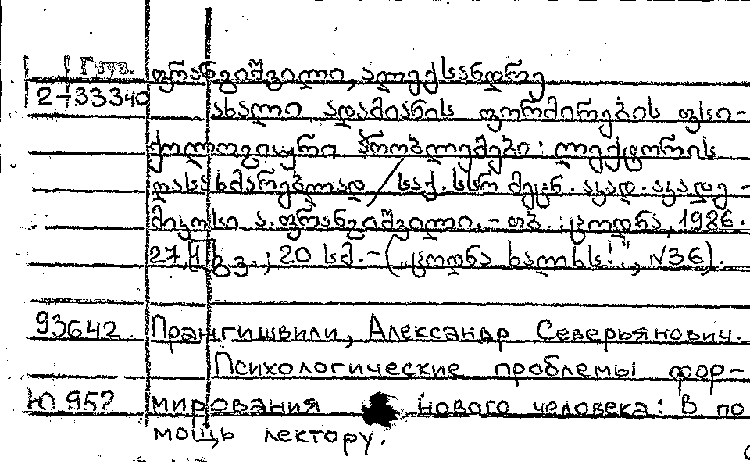 Груз. ფრანგიშვილი, ალექსანდრე
2-33340 ახალი ადამიანის ფორმირების ფსი-
ქოლოგიური პრობლემები: ლექტორის
დასახმარებლად / საქ. სსრ მეცნ. აკად. აკადე-
მიკოსი ა. ფრანგიშვილი. - თბ. : ცოდნა, 1986.
27, გვ. ; 20 სმ. - („ცოდნა ხალხს!", N36).
93642 Прангишвили, Александр Северьянович.
Психологические проблемы фор-
Ю 952 мирования нового человека: В по
мощь лектору.